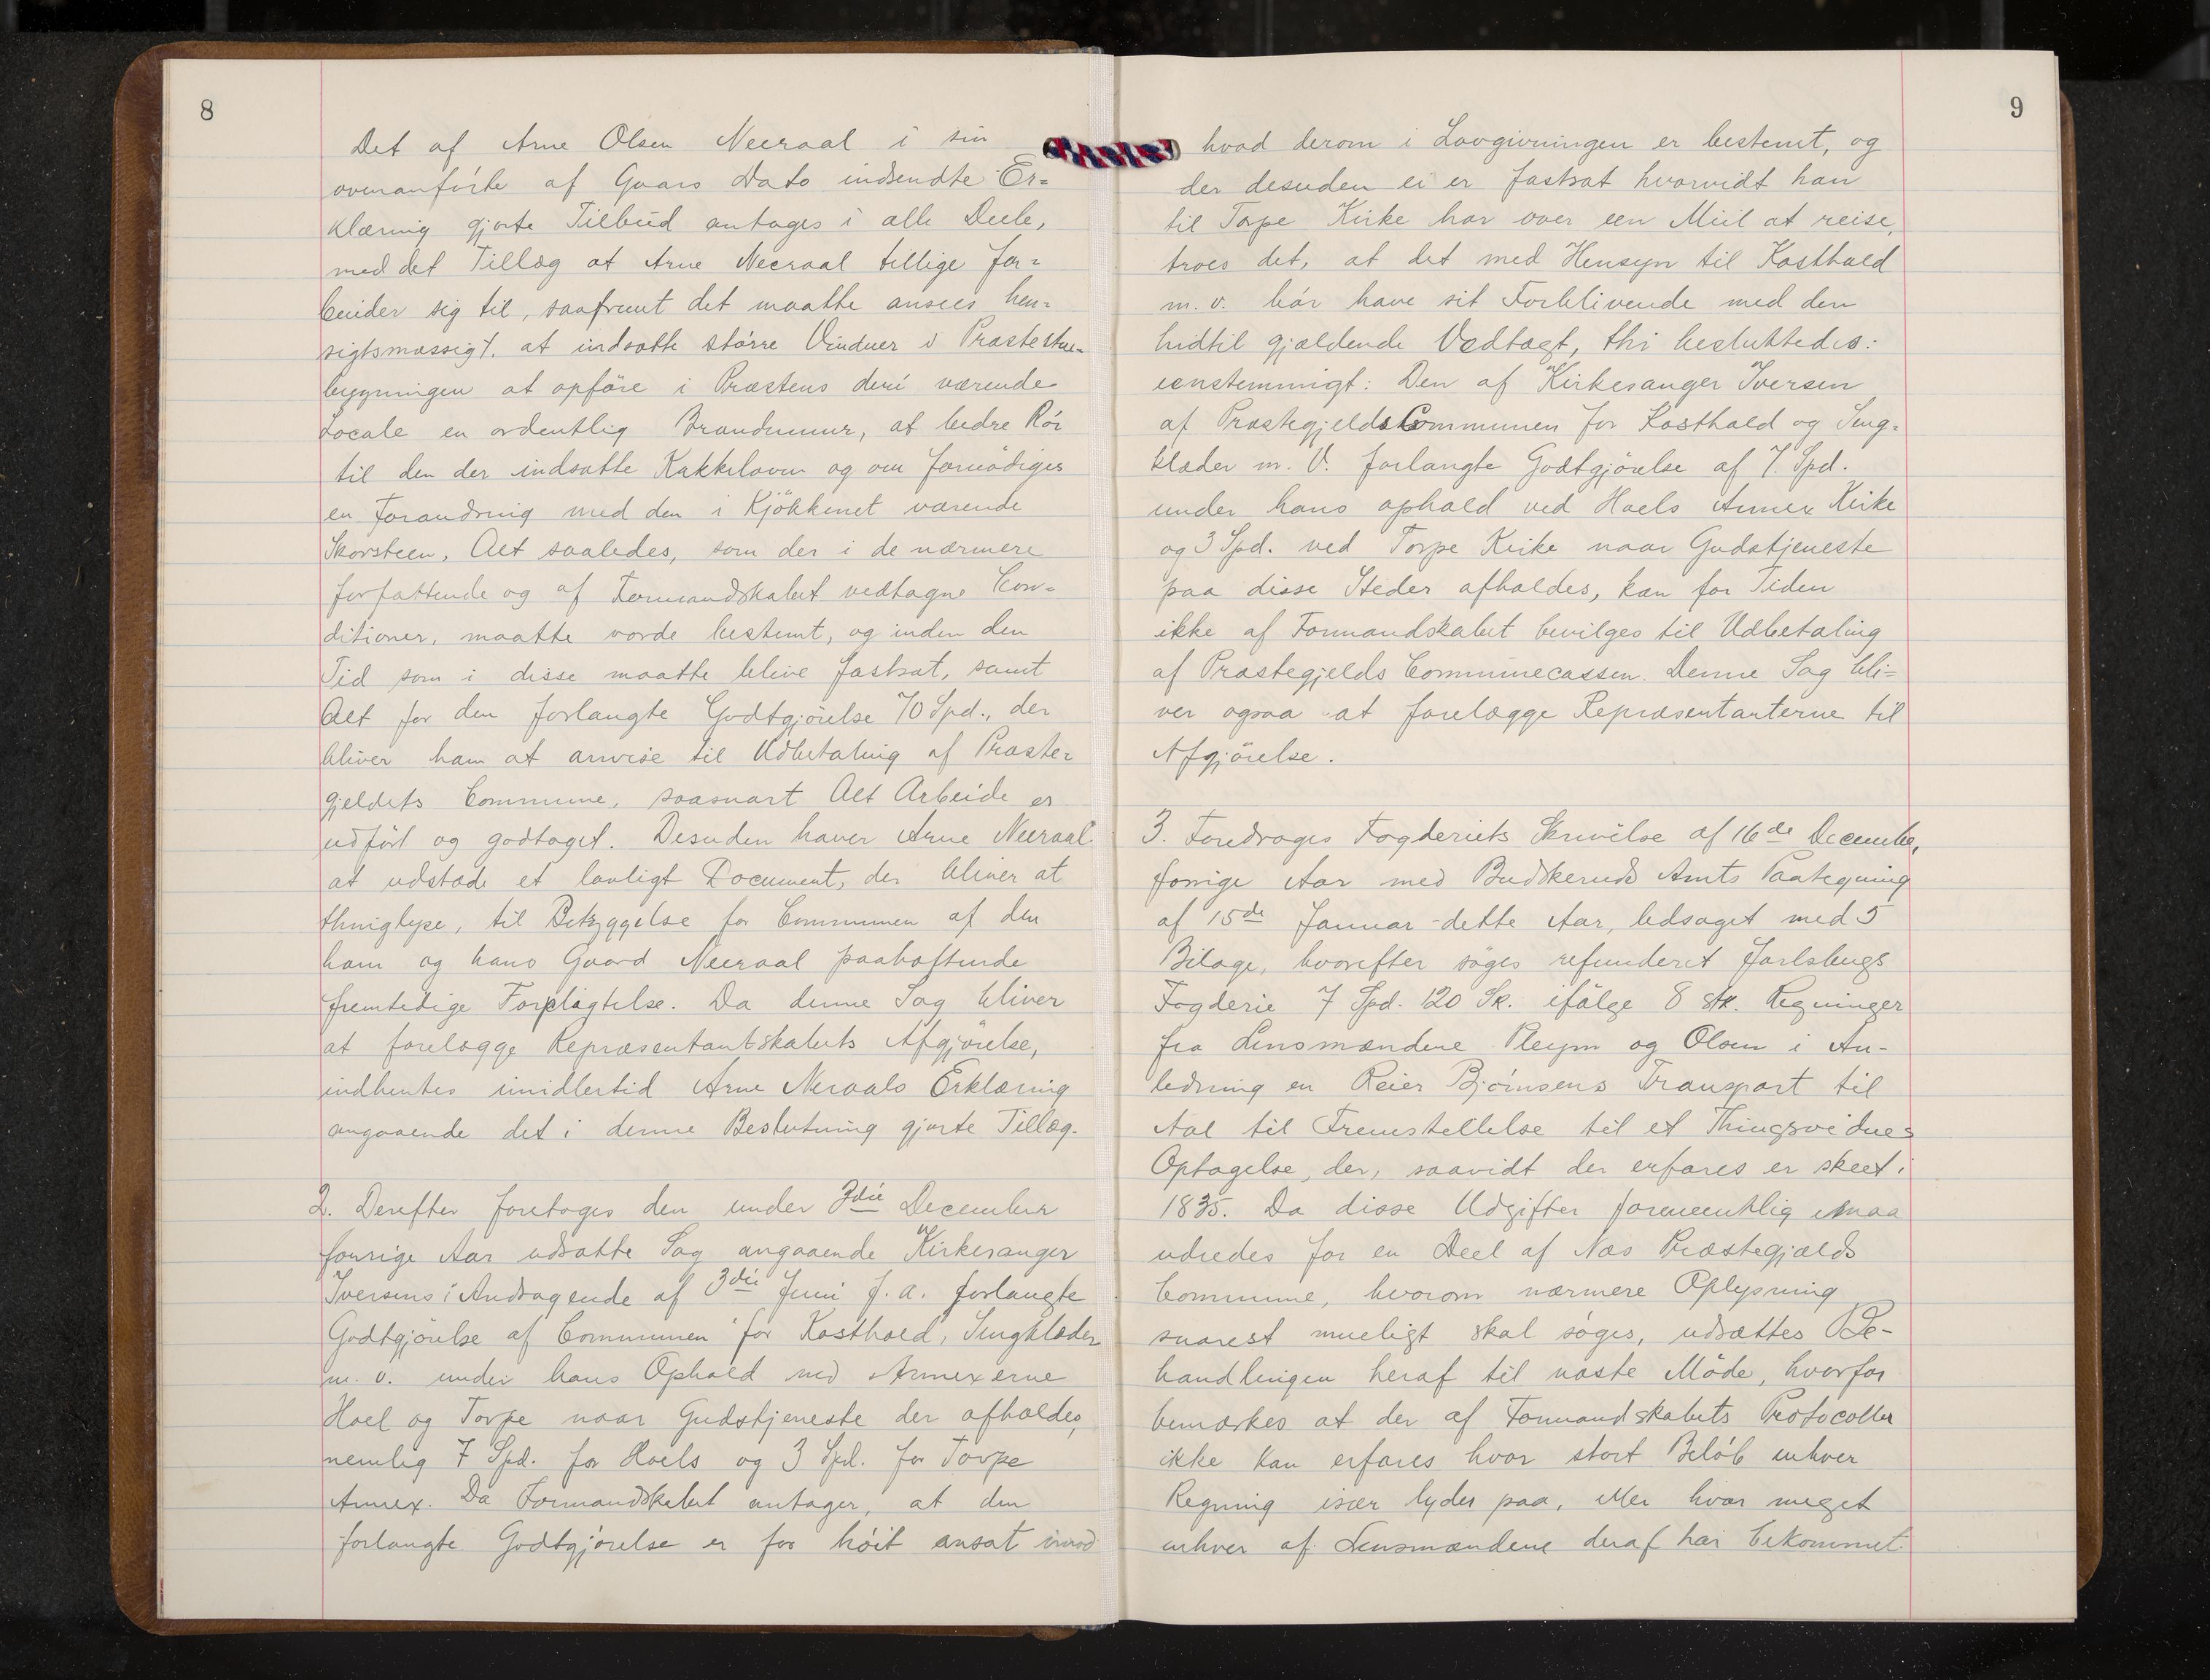 8
Det af Arne Olsen Neeraal i sin
ovenanförte af Gaars Dato indsendte Er=
klæring gjorte Tilbud antages i alle Deele,
med det Tillæg at Arne Neeraal tillige for=
binder sig til, saafremt det maatte ansees hen=
sigtsmæssigt. at indsætte större Vinduer i Præstestue=
bygningen at opföre i Præstens deri værende
Locale en ordentlig Brandmuur, at bedre Rör
til den der indsatte Kakkelovn og om fornödiges
en Forandring med den i Kjökkenet værende
Skorsteen, Alt saaledes, som der i de nærmere
forfattende og af Formandskabet vedtagne Con=
ditioner, maatte vorde bestemt, og inden den
Tid som i disse maatte blive fastsat, samt
Alt for den forlangte Godtgjörelse 70 Spd., der
bliver ham at anvise til Udbetaling af Præste=
gjeldets Commune, saasnart Alt Arbeide er
udfört og godtaget. Desuden haver Arne Neeraal
at udstæde et lovligt Document, der bliver at
thinglyse, til Betryggelse for Communen af den
ham og hans Gaard Neeraal paahæftende
fremtidige Forpligtelse. Da denne Sag bliver
at forelægge Repræsentantskabets Afgjörelse,
indhentes imidlertid Arne Neraals Erklæring
angaaende det i denne Beslutning gjorte Tillæg.
2. Derefter foretoges den under 3die December
forrige Aar udsatte Sag angaaende Kirkesanger
Iversens i Andragende af 3die Juni f. a. forlangte
Godtgjörelse af Communen for Kosthold, Sengklæder
m. v. under hans Ophold ved Annexerne
Hoel og Torpe naar Gudstjeneste der afholdes,
nemlig 7 Spd. for Hoels og 3 Spd. for Torpe
Annex. Da Formandskabet antager, at den
forlangte Godtgjörelse er for höit ansat imod
9
hvad derom i Lovgivningen er bestemt, og
der desuden ei er fastsat hvorvidt han
til Torpe Kirke har over een Miil at reise,
troes det, at det med Hensyn til Kosthold
m. v. bör have sit Forblivende med den
hidtil gjældende Vedtægt, thi besluttedes:
eenstemmigt: Den af Kirkesanger Iversen
af PræstegjeldsCommunen for Kosthold og Seng=
klæder m. V. forlangte Godtgjörelse af 7. Spd.
under hans ophold ved Hoels Annex Kirke
og 3 Spd. ved Torpe Kirke naar Gudstjeneste
paa disse Steder afholdes, kan for Tiden
ikke af Formandskabet bevilges til Udbetaling
af Præstegjelds Communecassen. Denne Sag bli=
ver ogsaa at forelægge Repræsentanterne til
Afgjörelse.
3. Foredroges Fogderiets Skrivelse af 16de December,
forrige Aar med Budskeruds Amts Paategning
af 15de Januar dette Aar, ledsaget med 5
Bilage, hvorefter söges refunderet Jarlsbergs
Fogderie 7 Spd. 120 Sk. ifölge 8 stk. Regninger
fra Lensmændene Pleym og Olsen i An-
ledning en Reier Björnsens Transport til
Aal til Fremstellelse til et Thingsvidnes
Optagelse, der, saavidt der erfares er skeet i
1835. Da disse Udgifter formeentlig maa
udredes for en Deel af Næs Præstegjælds
Commune, hvorom nærmere Oplysning
snarest mueligt skal söges, udsættes Be-
handlingen heraf til næste Möde, hvorfor
bemærkes at der af Formandskabets Protocoller
ikke kan erfares hvor stort Belöb enhver
Regning især lyder paa, eller hvor meget
enhver af Lensmændene deraf har bekommet